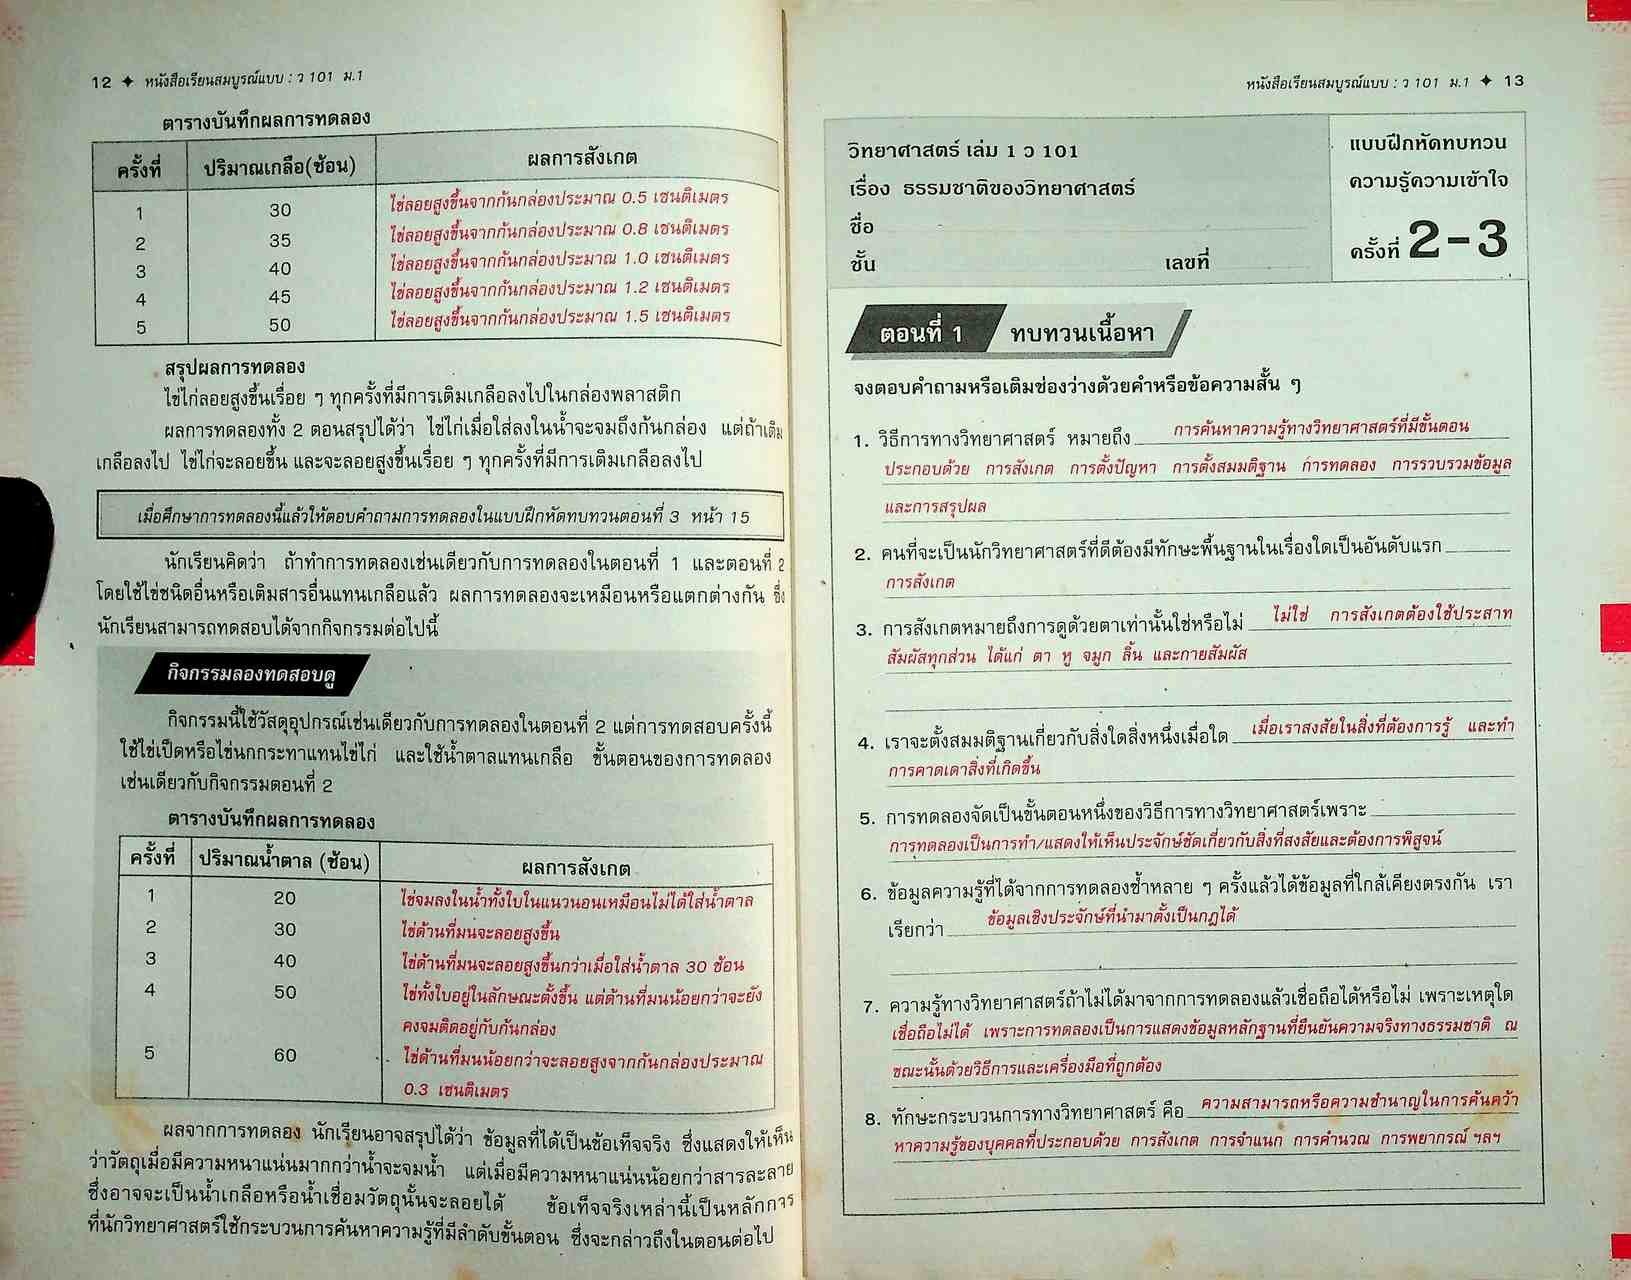 12 ✦ หนังสือเรียนสมบูรณ์แบบ : ว 101 ม.1
ตารางบันทึกผลการทดลอง
ครั้งที่ ปริมาณเกลือ(ช้อน) ผลการสังเกต
1 30 ไข่ลอยสูงขึ้นจากก้นกล่องประมาณ 0.5 เซนติเมตร
2 35 ไข่ลอยสูงขึ้นจากก้นกล่องประมาณ 0.8 เซนติเมตร
3 40 ไข่ลอยสูงขึ้นจากก้นกล่องประมาณ 1.0 เซนติเมตร
4 45 ไข่ลอยสูงขึ้นจากก้นกล่องประมาณ 1.2 เซนติเมตร
5 50 ไข่ลอยสูงขึ้นจากก้นกล่องประมาณ 1.5 เซนติเมตร
สรุปผลการทดลอง
ไข่ไก่ลอยสูงขึ้นเรื่อย ๆ ทุกครั้งที่มีการเติมเกลือลงไปในกล่องพลาสติก
ผลการทดลองทั้ง 2 ตอนสรุปได้ว่า ไข่ไก่เมื่อใส่ลงในน้ำจะจมถึงก้นกล่อง แต่ถ้าเติม
เกลือลงไป ไข่ไก่จะลอยขึ้น และจะลอยสูงขึ้นเรื่อย ๆ ทุกครั้งที่มีการเติมเกลือลงไป
เมื่อศึกษาการทดลองนี้แล้วให้ตอบคำถามการทดลองในแบบฝึกหัดทบทวนตอนที่ 3 หน้า 15
นักเรียนคิดว่า ถ้าทำการทดลองเช่นเดียวกับการทดลองในตอนที่ 1 และตอนที่ 2
โดยใช้ไข่ชนิดอื่นหรือเติมสารอื่นแทนเกลือแล้ว ผลการทดลองจะเหมือนหรือแตกต่างกัน ซึ่ง
นักเรียนสามารถทดสอบได้จากกิจกรรมต่อไปนี้
กิจกรรมลองทดสอบดู
กิจกรรมนี้ใช้วัสดุอุปกรณ์เช่นเดียวกับการทดลองในตอนที่ 2 แต่การทดสอบครั้งนี้
ใช้ไข่เป็ดหรือไข่นกกระทาแทนไข่ไก่ และใช้น้ำตาลแทนเกลือ ขั้นตอนของการทดลอง
เช่นเดียวกับกิจกรรมตอนที่ 2
ตารางบันทึกผลการทดลอง
ครั้งที่ ปริมาณน้ำตาล (ช้อน) ผลการสังเกต
1 20 ไข่จมลงในน้ำทั้งใบในแนวนอนเหมือนไม่ได้ใส่น้ำตาล
2 30 ไข่ด้านที่มนจะลอยสูงขึ้น
3 40 ไข่ด้านที่มนจะลอยสูงขึ้นกว่าเมื่อใส่น้ำตาล 30 ช้อน
4 50 ไข่ทั้งใบอยู่ในลักษณะตั้งขึ้น แต่ด้านที่มนน้อยกว่าจะยัง
คงจมติดอยู่กับก้นกล่อง
5 60 ไข่ด้านที่มนน้อยกว่าจะลอยสูงจากก้นกล่องประมาณ
0.3 เซนติเมตร
ผลจากการทดลอง นักเรียนอาจสรุปได้ว่า ข้อมูลที่ได้เป็นข้อเท็จจริง ซึ่งแสดงให้เห็น
ว่าวัตถุเมื่อมีความหนาแน่นมากกว่าน้ำจะจมน้ำ แต่เมื่อมีความหนาแน่นน้อยกว่าสารละลาย
ซึ่งอาจจะเป็นน้ำเกลือหรือน้ำเชื่อมวัตถุนั้นจะลอยได้ ข้อเท็จจริงเหล่านี้เป็นหลักการ
ที่นักวิทยาศาสตร์ใช้กระบวนการค้นหาความรู้ที่มีลำดับขั้นตอน ซึ่งจะกล่าวถึงในตอนต่อไป
หนังสือเรียนสมบูรณ์แบบ : ว 101 ม.1 ✦ 13
วิทยาศาสตร์ เล่ม 1 ว 101
เรื่อง ธรรมชาติของวิทยาศาสตร์
ชื่อ
ชั้น เลขที่
แบบฝึกหัดทบทวน
ความรู้ความเข้าใจ
ครั้งที่ 2-3
ตอนที่ 1 ทบทวนเนื้อหา
จงตอบคำถามหรือเติมช่องว่างด้วยคำหรือข้อความสั้น ๆ
1. วิธีการทางวิทยาศาสตร์ หมายถึง การค้นหาความรู้ทางวิทยาศาสตร์ที่มีขั้นตอน
ประกอบด้วย การสังเกต การตั้งปัญหา การตั้งสมมติฐาน การทดลอง การรวบรวมข้อมูล
และการสรุปผล
2. คนที่จะเป็นนักวิทยาศาสตร์ที่ดีต้องมีทักษะพื้นฐานในเรื่องใดเป็นอันดับแรก
การสังเกต
3. การสังเกตหมายถึงการดูด้วยตาเท่านั้นใช่หรือไม่ ไม่ใช่ การสังเกตต้องใช้ประสาท
สัมผัสทุกส่วน ได้แก่ ตา หู จมูก ลิ้น และกายสัมผัส
4. เราจะตั้งสมมติฐานเกี่ยวกับสิ่งใดสิ่งหนึ่งเมื่อใด เมื่อเราสงสัยในสิ่งที่ต้องการรู้ และทำ
การคาดเดาสิ่งที่เกิดขึ้น
5. การทดลองจัดเป็นขั้นตอนหนึ่งของวิธีการทางวิทยาศาสตร์เพราะ
การทดลองเป็นการทำ/แสดงให้เห็นประจักษ์ชัดเกี่ยวกับสิ่งที่สงสัยและต้องการพิสูจน์
6. ข้อมูลความรู้ที่ได้จากการทดลองซ้ำหลาย ๆ ครั้งแล้วได้ข้อมูลที่ใกล้เคียงตรงกัน เรา
เรียกว่า ข้อมูลเชิงประจักษ์ที่นำมาตั้งเป็นกฎได้
7. ความรู้ทางวิทยาศาสตร์ถ้าไม่ได้มาจากการทดลองแล้วเชื่อถือได้หรือไม่ เพราะเหตุใด
เชื่อถือไม่ได้ เพราะการทดลองเป็นการแสดงข้อมูลหลักฐานที่ยืนยันความจริงทางธรรมชาติ ณ
ขณะนั้นด้วยวิธีการและเครื่องมือที่ถูกต้อง
8. ทักษะกระบวนการทางวิทยาศาสตร์ คือ ความสามารถหรือความชำนาญในการค้นคว้า
หาความรู้ของบุคคลที่ประกอบด้วย การสังเกต การจำแนก การคำนวณ การพยากรณ์ ฯลฯ